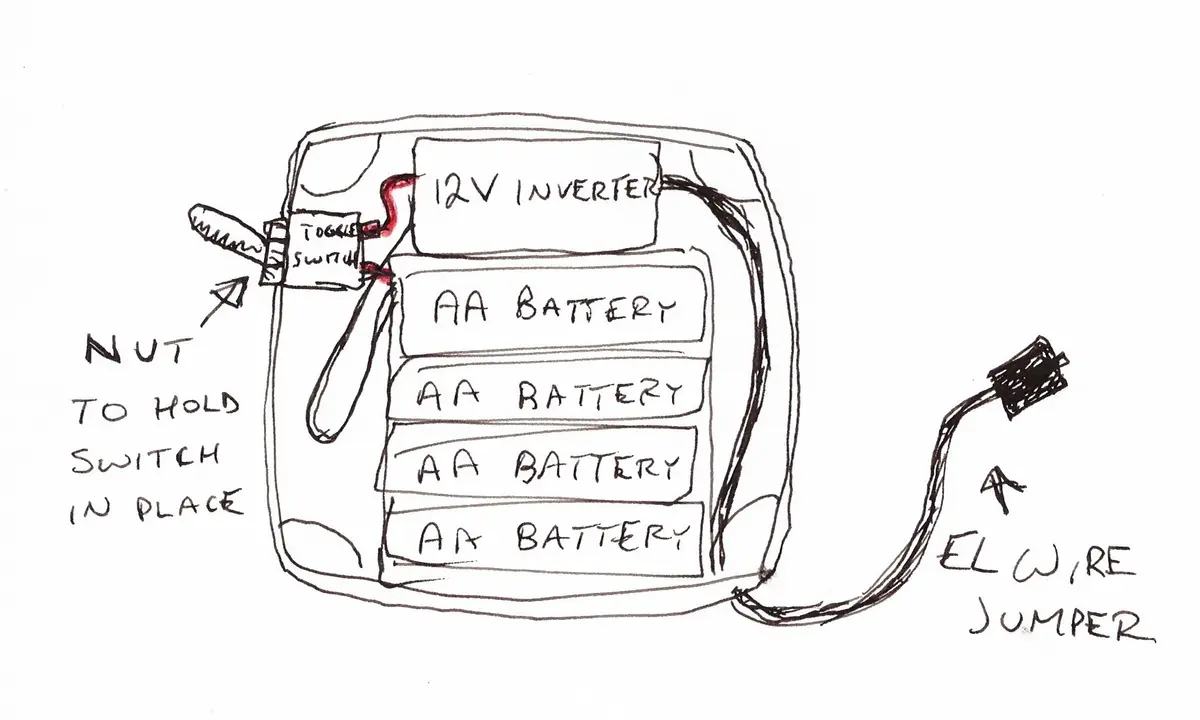 12V INVERTER
TOGGLE
SWITCH
AA BATTERY
AA BATTERY
AA BATTERY
AA BATTERY
NUT
TO HOLD
SWITCH
IN PLACE
EL WIRE
JUMPER